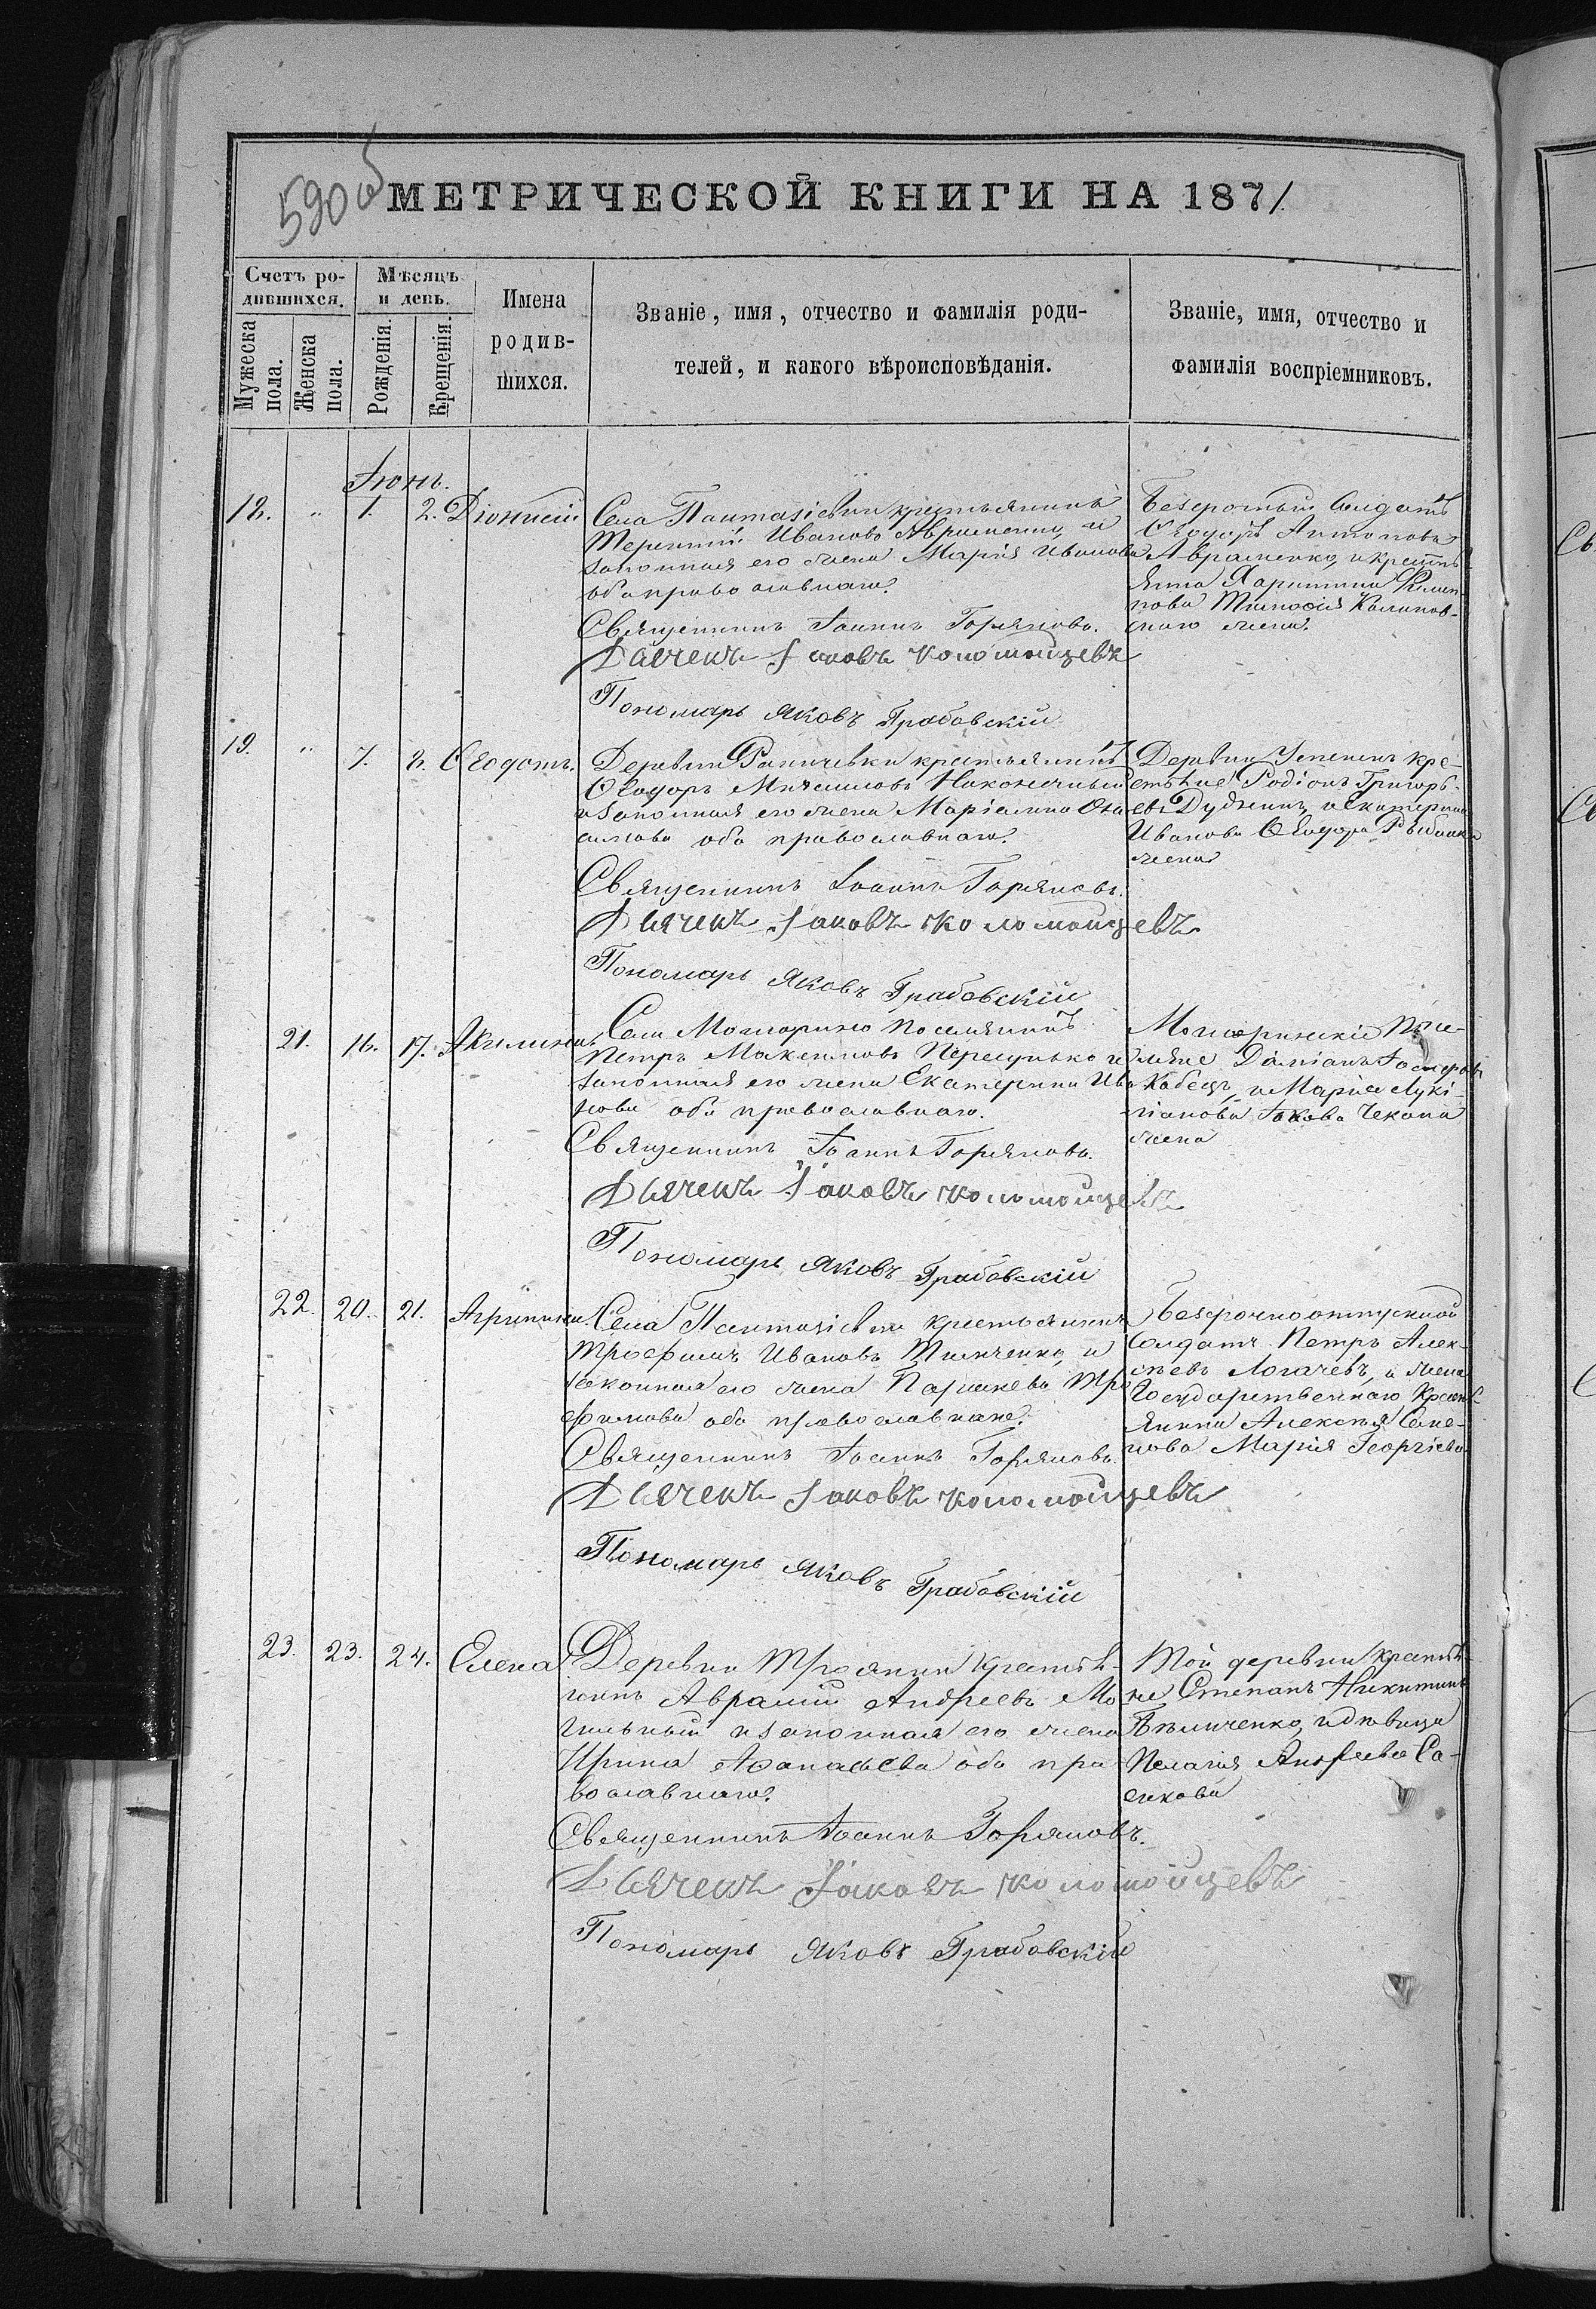 590 об
МЕТРИЧЕСКОЙ КНИГИ НА 1871
Счетъ ро-
дившихся.
Мужеска
пола.
Женска
пола.
Мѣсяцъ
и день.
Рожденія.
Крещенія.
Имена
родив-
шихся.
Званіе, имя, отчество и фамилія роди-
телей, и какого вѣроисповѣданія.
Званіе, имя, отчество и
фамилія воспріемниковъ.
Іюнь.
18. " 1. 2. Діонисій
Села Пантазіевки крестьянинъ
Терентій Ивановъ Авраменко, и
законная его жена Марія Иванова
оба православнаго.
Священникъ Іоаннъ Горяновъ.
Дьячекъ Іаковъ Коломойцевъ
Пономарь Яковъ Грабовскій
Безсрочный Солдатъ
Ѳеодоръ Антоновъ
Авраменко, и крестьян
янка Харитина Филип-
пова Тимофія Калинов-
скаго жена.
19. " 7. 8. Ѳеодотъ.
Деревни крестьянинъ
Ѳеодоръ Михаиловъ Наконечный
и законная его жена Маріанна
оба православнаго.
Священникъ Іоаннъ Горяновъ.
Дьячекъ Іаковъ Коломойцевъ
Пономарь Яковъ Грабовскій
Деревни кре-
стьяне Родіонъ Григорь-
евъ и Екатерина
Иванова Ѳеодора
жена
21. 16. 17. Акилина.
Села Мошорино поселянинъ
Петръ Максимовъ и
законная его жена Екатерина Ива
нова оба православнаго.
Священникъ Іоаннъ Горяновъ.
Дьячекъ Іаковъ Коломойцевъ
Пономарь Яковъ Грабовскій
Мошоринскіе посе-
ляне Даміанъ
Кобецъ, и Марія Лукі-
-іанова Іакова Чекана
жена
22. 20. 21. Агрипина.
Села Пантазіевки крестьянинъ
Трофимъ Ивановъ Тимченко, и
законная его жена Параскева Тро
фимова оба православнаго.
Священникъ Іоаннъ Горяновъ.
Дьячекъ Іаковъ Коломойцевъ
Пономарь Яковъ Грабовскій
Безсрочноотпускной
Солдатъ Петръ Алек-
сѣевъ Логачевъ, и жена
Государственнаго Кресть-
янина Алексѣя Семе-
нова Марія Георгіева
23. 23. 24. Елена
Деревни Трояники крестья-
нинъ Аврамій Андреевъ Мо
гильный и законная его жена
Ирина Аѳанасьева оба пра-
вославнаго.
Священникъ Іоаннъ Горяновъ.
Дьячекъ Іаковъ Коломойцевъ
Пономарь Яковъ Грабовскій
Той деревни крестья-
не Степанъ Никитинъ
и дѣвица
Пелагія Андреева Са-
енкова